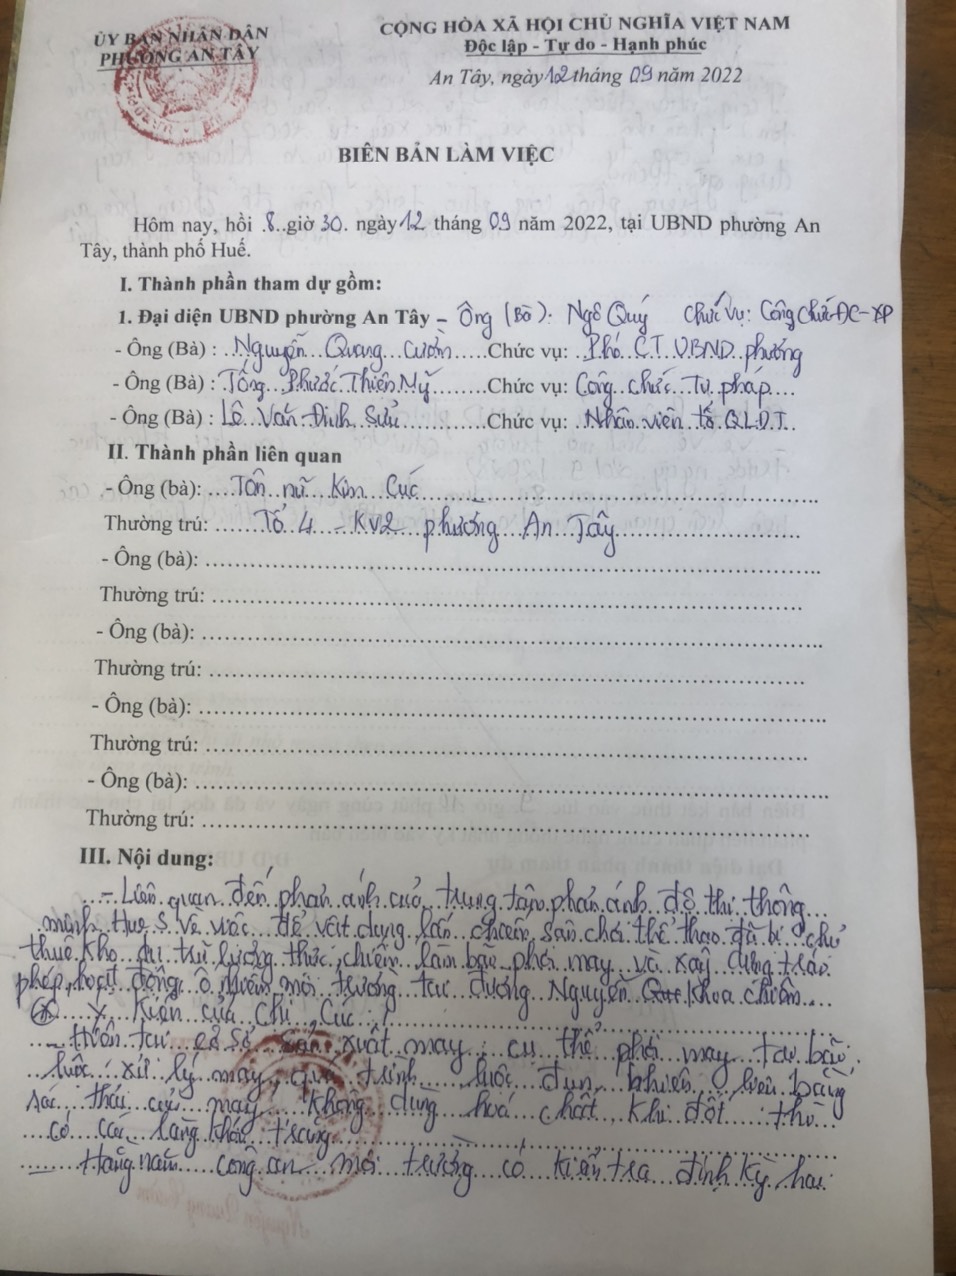 ỦY BAN NHÂN DÂN
PHƯỜNG AN TÂY
CỘNG HÒA XÃ HỘI CHỦ NGHĨA VIỆT NAM
Độc lập - Tự do - Hạnh phúc
An Tây, ngày 12 tháng 09 năm 2022
BIÊN BẢN LÀM VIỆC
Hôm nay, hồi 8 giờ 30. ngày 12 tháng 09 năm 2022, tại UBND phường An
Tây, thành phố Huế.
I. Thành phần tham dự gồm:
1. Đại diện UBND phường An Tây – Ông (Bà): Ngô Quý Chức vụ: Công Chức ĐC-XP
- Ông (Bà) : Nguyễn Quang Cườm Chức vụ: Phó C.T UBND phường
- Ông (Bà) : Tống Phước Thiên Mỹ Chức vụ: Công chức Tư pháp
- Ông (Bà) : Lê Văn Đình Sửu Chức vụ: Nhân viên tổ QLĐT
II. Thành phần liên quan
- Ông (bà): Tôn nữ Kim Cúc
Thường trú: Tổ 4 - KV2 phường An Tây
- Ông (bà):
Thường trú:
- Ông (bà):
Thường trú:
- Ông (bà):
Thường trú:
- Ông (bà):
Thường trú:
III. Nội dung:
- Liên quan đến phản ánh của trung tâm phản ánh đô thị thông
minh Hue S về việc để vật dụng lấn chiếm sân chơi thể thao đã bị chủ
thuê kho dự trữ lương thực chiếm làm bãi phơi mây và xây dựng trái
phép, hoạt động ô nhiễm môi trường tại đường Nguyễn Khoa Chiêm
Ý Kiến của Chị Cúc:
cơ sở sản xuất mây, cụ thể phơi mây tại bãi
luộc, xử lý mây, quá trình luộc đun nhiên liệu bằng
thải của mây không dùng hoá chất, khi đốt thì
có các làng khói trắng
Hàng năm công an môi trường có kiểm tra định kỳ hai